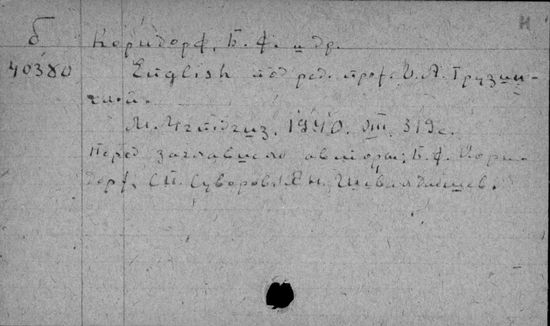 Н
б Корндорф, Б. Ф. и др.
40380 English под ред. проф. И. А. Грузин-
ской.
М. Учпедгиз, 1940. VIII, 319 с.
Перед заглавием авторы: Б. Ф. Корн-
дорф, С. П. Суворов, Я. Н.